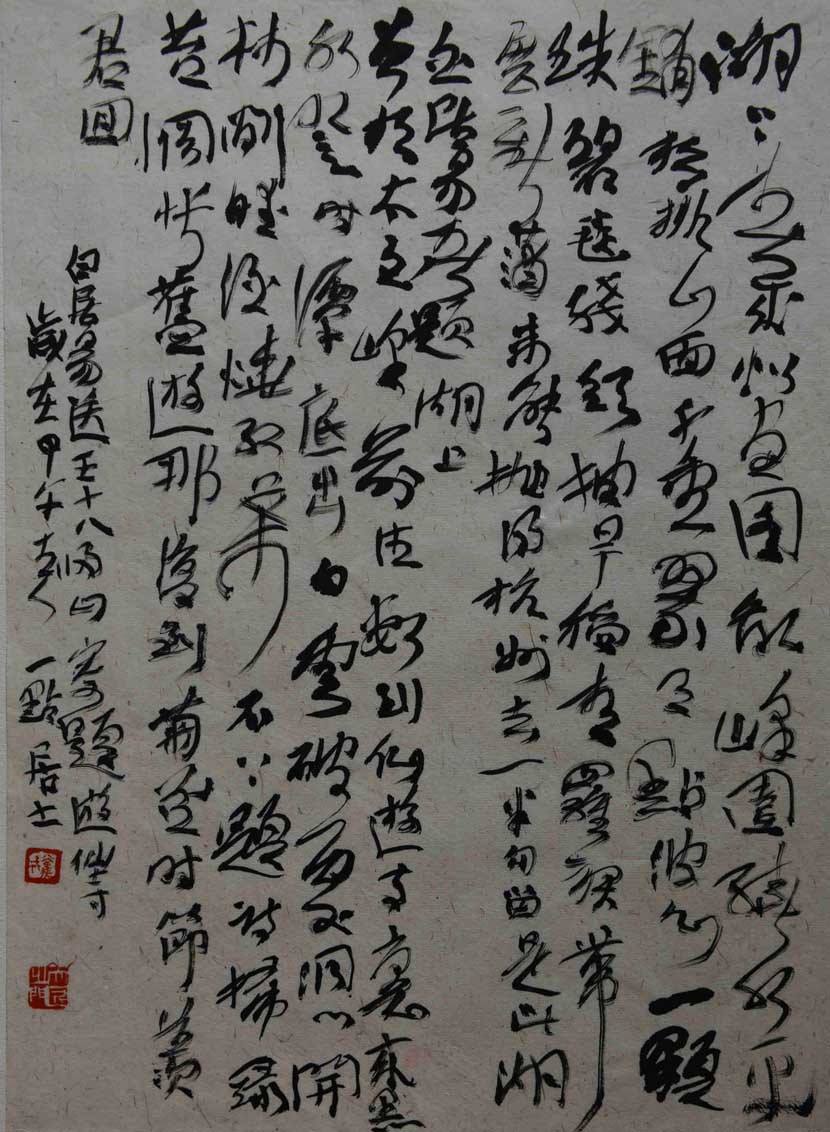 湖上春来似画图乱峰围繞水平
鋪松排山面千重翠月點波心一顆
珠碧毯綫頭抽早稻青羅裙帶
展新蒲未能抛得杭州去一半勾留是此湖
白居易春題湖上
曾於太白峰前住數到仙遊寺裏來黑
水澄時潭底出白雲破處洞門開
林間暖酒燒紅葉石上題詩掃綠
苔惆悵舊遊那復到菊花時節羨
君回
白居易送王十八歸山寄題遊仙寺
歲在甲午 一點居士